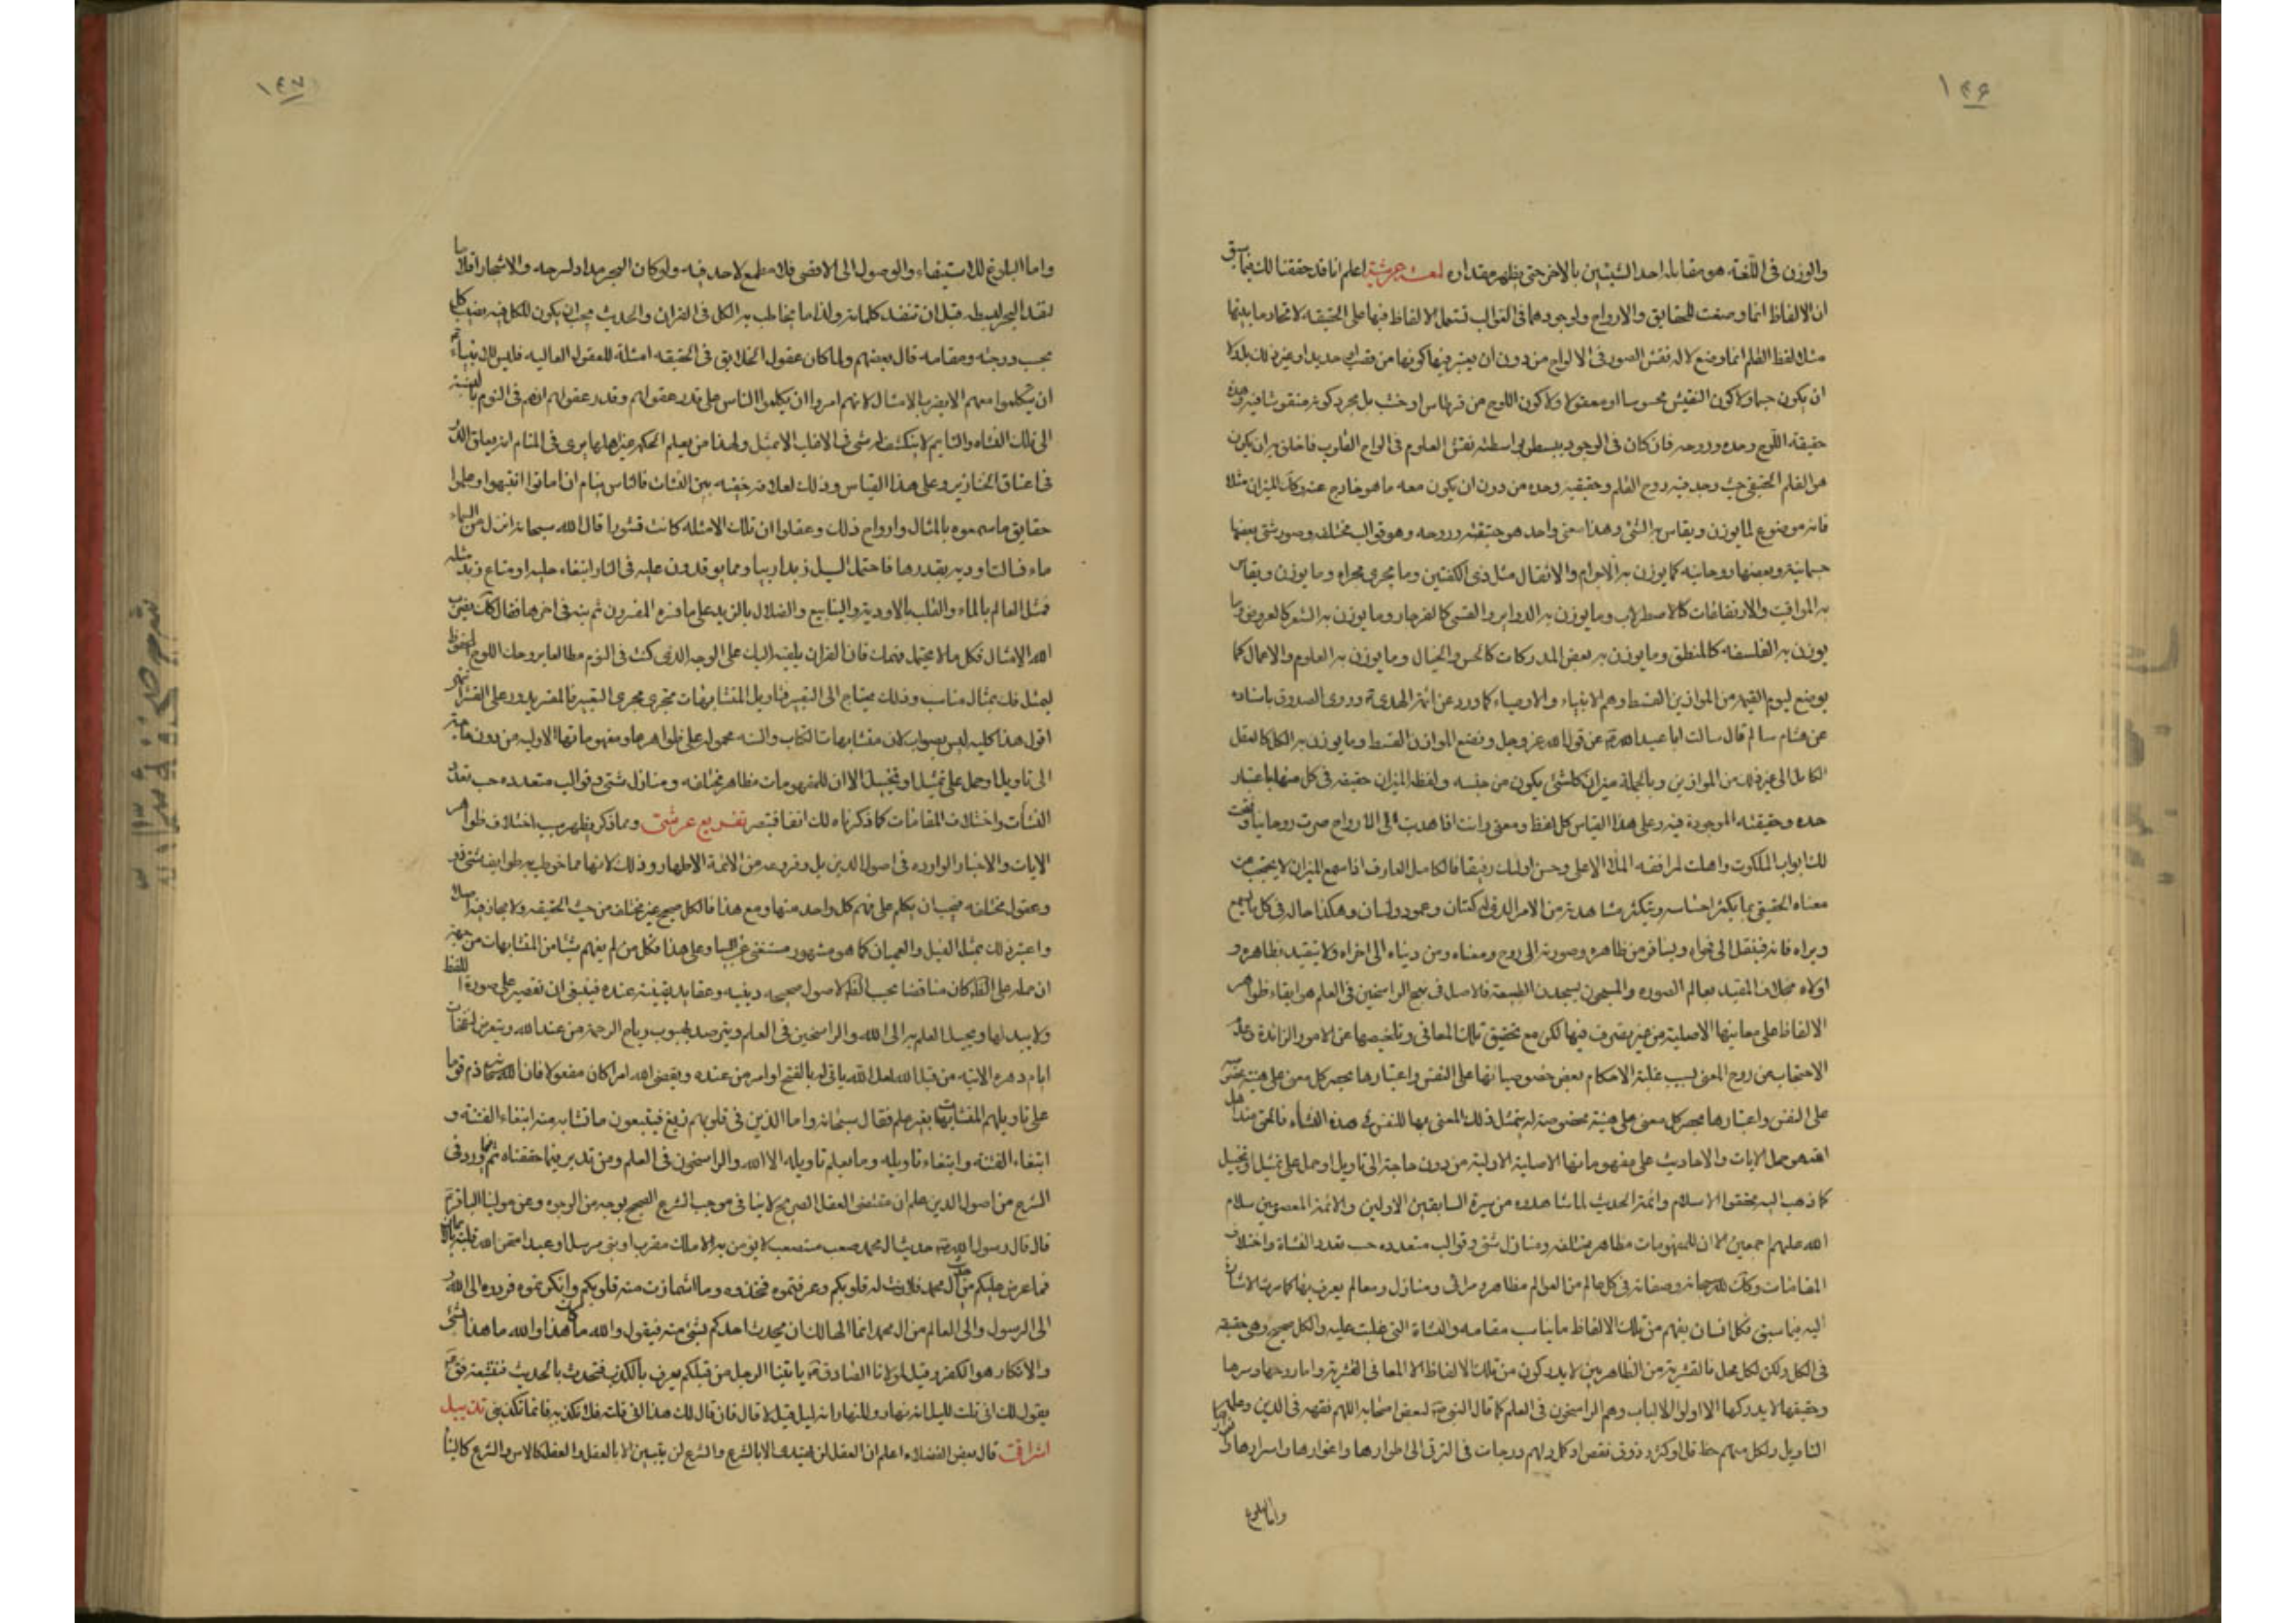 ١٤۶
والوزن فى اللغة هو مقابلة احد الشيئين بالاخر حتى يظهر مقداره لمعة عرشية اعلم انا قد حققنا لك فيما سبق
ان الالفاظ انما وضعت للحقايق والارواح ولوجودهما فى القوالب تستعمل الالفاظ فيها على الحقيقة لاتحاد ما بينهما
مثلا لفظ القلم انما وضع لالة نقش الصور فى الالواح من دون ان يعتبر فيها كونها من قصب او حديد او غير ذلك بل ولا
ان يكون جسما ولا كون النقش محسوسا او معقولا ولا كون اللوح من قرطاس او خشب بل مجرد كونه منقوشا فيه وهذا
حقيقة اللوح وحده وروحه فان كان فى الوجود يبسط بواسطته نقش العلوم فى الواح القلوب فاخلق به ان يكون
هو القلم الحقيقى حيث وجد فيه روح القلم وحقيقته وحده من دون ان يكون معه ما هو خارج عنه وكك الميزان مثلا
فانه موضوع لما يوزن ويقاس به الشئ وهذا معنى واحد هو حقيقته وروحه وهو قوالب مختلفة وصور شتى بعضها
جسمانية وبعضها روحانية كما يوزن به الاجرام والاثقال مثل ذى الكفتين وما يجرى مجراه وما يوزن ويقاس
به المواقيت والارتفاعات كالاصطرلاب وما يوزن به الدواير والقسى كالفرجار وما يوزن به الشعر كالعروض وما
يوزن به الفلسفة كالمنطق وما يوزن به بعض المدركات كالحس والخيال وما يوزن به العلوم والاعمال كما
يوضع ليوم القيمة من الموازين القسط وهم الانبياء والاوصياء كما ورد عن ائمة الهدى ع وروى الصدوق باسناده
عن هشام سالم قال سالت ابا عبد الله ع عن قول الله عز وجل ونضع الموازين القسط وما يوزن به الكل كالعقل
الكامل الى غير ذلك من الموازين وبالجملة ميزان كل شئ يكون من جنسه ولفظة الميزان حقيقة فى كل منها باعتبار
حده وحقيقته الموجودة فيه وعلى هذا القياس كل لفظ ومعنى وانت اذا هديت الى الارواح صرت روحانيا وفتحت
لك ابواب الملكوت واهلت لمرافقة الملأ الاعلى وحسن اولئك رفيقا فالكامل العارف اذا سمع الميزان لا يحتجب عن
معناه الحقيقى بما يكثر احساسه ويتكرر مشاهدته من الامر الذى له كفتان وعمود ولسان وهكذا حاله فى كل ما يسمع
ويراه فانه ينتقل الى فحواه ويسافر من ظاهره وصورته الى روح ومعناه ومن دنياه الى اخراه ولا يتقيد بظاهره و
اولاه بخلاف المقيد بعالم الصورة والمسجون بسجن الطبيعة فالاصل فى نهج الراسخين فى العلم هو ابقاء ظواهر
الالفاظ على معانيها الاصلية من غير تصرف فيها لكن مع تحقيق تلك المعانى وتلخيصها عن الامور الزائدة وعدم
الاحتجاب عن روح المعنى بسبب غلبة الاحكام بعض خصوصياتها على النفس واعتبارها بحصر كل معنى على هيئة
على النفس واعتبارها بحصر كل معنى على هيئة مخصوصة له يتمثل ذلك المعنى بها للنفس فى هذه النشأة فالحق عند اهل
الله هو حمل الايات والاحاديث على مفهوماتها الاصلية الاولية من دون حاجة الى تاويل او حمل على تمثيل او تخييل
كما ذهب اليه محققوا الاسلام وائمة الحديث لما شاهدوه من سيرة السابقين الاولين والائمة المعصومين سلام
الله عليهم اجمعين الا ان للمفهومات مظاهر مختلفة ومنازل شتى وقوالب متعددة حسب تعدد النشأة واختلاف
المقامات وكك لله سبحانه وصفاته فى كل عالم من العوالم مظاهر ومرائى ومنازل ومعالم يعرف بها كما مرت الاشارة
اليه فيما سبق فكل انسان يفهم من تلك الالفاظ ما يناسب مقامه والنشاة التى غلبت عليه والكل صحيح وهى حقيقة
فى الكل ولكن لكل محل فالقشرية من الظاهريين لا يدركون من تلك الالفاظ الا المعانى القشرية واما روحها وسرها
وحقيقتها لا يدركها الا اولوا الالباب وهم الراسخون فى العلم كما قال النبى ص لبعض اصحابه اللهم فقهه فى الدين وعلمه
التاويل ولكل منهم حظ قل او كثر وذوق نقص او كمل ولهم درجات فى الترقى الى اطوارها واغوارها واسرارها و
واما البلوغ
١٤٧
واما البلوغ للاستيفاء والوصول الى الاقصى فلا مطمع لاحد فيه ولو كان البحر مدادا لشرحه والاشجار اقلاما
لنفد البحر لبطه قبل ان تنفد كلماته ولذا ما يخاطب به الكل فى القران والحديث يجب ان يكون للكل فيه نصيب كل
بحسب درجته ومقامه قال بعضهم ولما كان عقول الخلايق فى الحقيقة امثلة للعقول العالية فليس للانبياء
ان يتكلموا معهم الا بضرب الامثال لانهم امروا ان يكلموا الناس على قدر عقولهم وقدر عقولهم انهم فى النوم بالنسبة
الى تلك النشاة والنايم لا ينكشف له شئ فى الاغلب الا بمثل ولهذا من يعلم الحكمة غير اهلها يرى فى المنام انه يعلق الدر
فى اعناق الخنازير وعلى هذا القياس وذلك لعلاقة خفية بين النشات فالناس نيام اذا ماتوا انتبهوا وعلموا
حقايق ما سمعوه بالمثال وارواح ذلك وعقلوا ان تلك الامثلة كانت قشورا قال الله سبحانه انزل من السماء
ماء فسالت اودية بقدرها فاحتمل السيل زبدا رابيا ومما يوقدون عليه فى النار ابتغاء حلية او متاع زبد مثله
فمثل العالم بالماء والقلب بالاودية والينابيع والضلال بالزبد على ما فسره المفسرون ثم نبه فى اخرها فقال كك يضرب
الله الامثال فكل ما لا يحتمل فهمك فان القران يلقيه اليك على الوجه الذى كنت فى النوم مطالعا بروحك اللوح المحفوظ
ليمثل لك بمثال مناسب وذلك يحتاج الى التعبير فتاويل المتشابهات تجرى مجرى التعبير فالمفسر يدور على القشر انتهى
اقول هذا كليه ليس بصواب لان متشابهات الكتاب والسنة محمولة على ظواهرها ومفهوماتها الاولية من دون حاجة
الى تاويل او حمل على تمثيل او تخييل الا ان للمفهومات مظاهر مختلفة ومنازل شتى وقوالب متعددة حسب تعدد
النشأت واختلاف المقامات كما ذكرناه لك انفا فتبصر تفريع عرشى ومما ذكر يظهر سبب اختلاف ظواهر
الايات والاخبار الواردة فى اصول الدين بل وفروعه من الائمة الاطهار وذلك لانها مما خوطب به طوايف شتى ذو
وعقول مختلفة فيجب ان يكلم على فهم كل واحد منها ومع هذا فالكل صحيح غير مختلف من حيث الحقيقة ولا مجاز فيه اصلا
واعتبر ذلك بمثلة الفيل والعميان كما هو مشهور مستغنى عن البيان وعلى هذا فكل من لم يفهم شيئا من المتشابهات من جهة
ان حمله على الظ كان مناقضا بحسب الظ لاصول صحيحة دينية وعقايد يقينية عنده فينبغى ان نقتصر على صورة اللفظ
ولا يبدلها ويحيل العلم به الى الله والراسخين فى العلم ويترصد لهبوب رياح الرحمة من عند الله ويتعرض لنفحات
ايام دهره الاتية من قبل الله لعل الله ياتى له بالفتح او امر من عنده ويقضى الله امرا كان مفعولا فان الله سبحانه ذم قوما
على تاويلهم المتشابهات بغير علم فقال سبحانه واما الذين فى قلوبهم زيغ فيتبعون ما تشابه منه ابتغاء الفتنة و
ابتغاء الفتنة وابتغاء تاويله وما يعلم تاويله الا الله والراسخون فى العلم ومن تدبر فيما حققناه ثم فيما ورد فى
الشرع من اصول الدين علم ان مقتضى العقل الصريح لا ينافى موجب الشرع الصحيح بوجه من الوجوه وعن مولينا الباقر ع
قال قال رسول الله ص حديث ال محمد صعب مستصعب لا يؤمن به الا ملك مقرب او نبى مرسل او عبد امتحن الله قلبه للايمان
فما عرض عليكم من حديث ال محمد فلانت له قلوبكم وعرفتموه فخذوه وما اشمازت منه قلوبكم وانكرتموه فردوه الى الله و
الى الرسول والى العالم من ال محمد انما الهالك ان يحدث احدكم بشئ منه فيقول والله ما كان هذا والله ما هذا بشئ
والانكار هو الكفر وقيل لمولانا الصادق ع ياتينا الرجل من قبلكم يعرف بالكذب فيحدث بالحديث فنستبشعه فق ع
يقول لك انى قلت لليل انه نهار وللنهار انه ليل قيل لا قال فان قال لك هذا انى قلته فلا تكذبه فانما تكذبنى تذييل
اشراقى قال بعض الفضلاء اعلم ان العقل لن يهتدى الا بالشرع والشرع لن يتبين الا بالعقل والعقل كالاس والشرع كالبناء